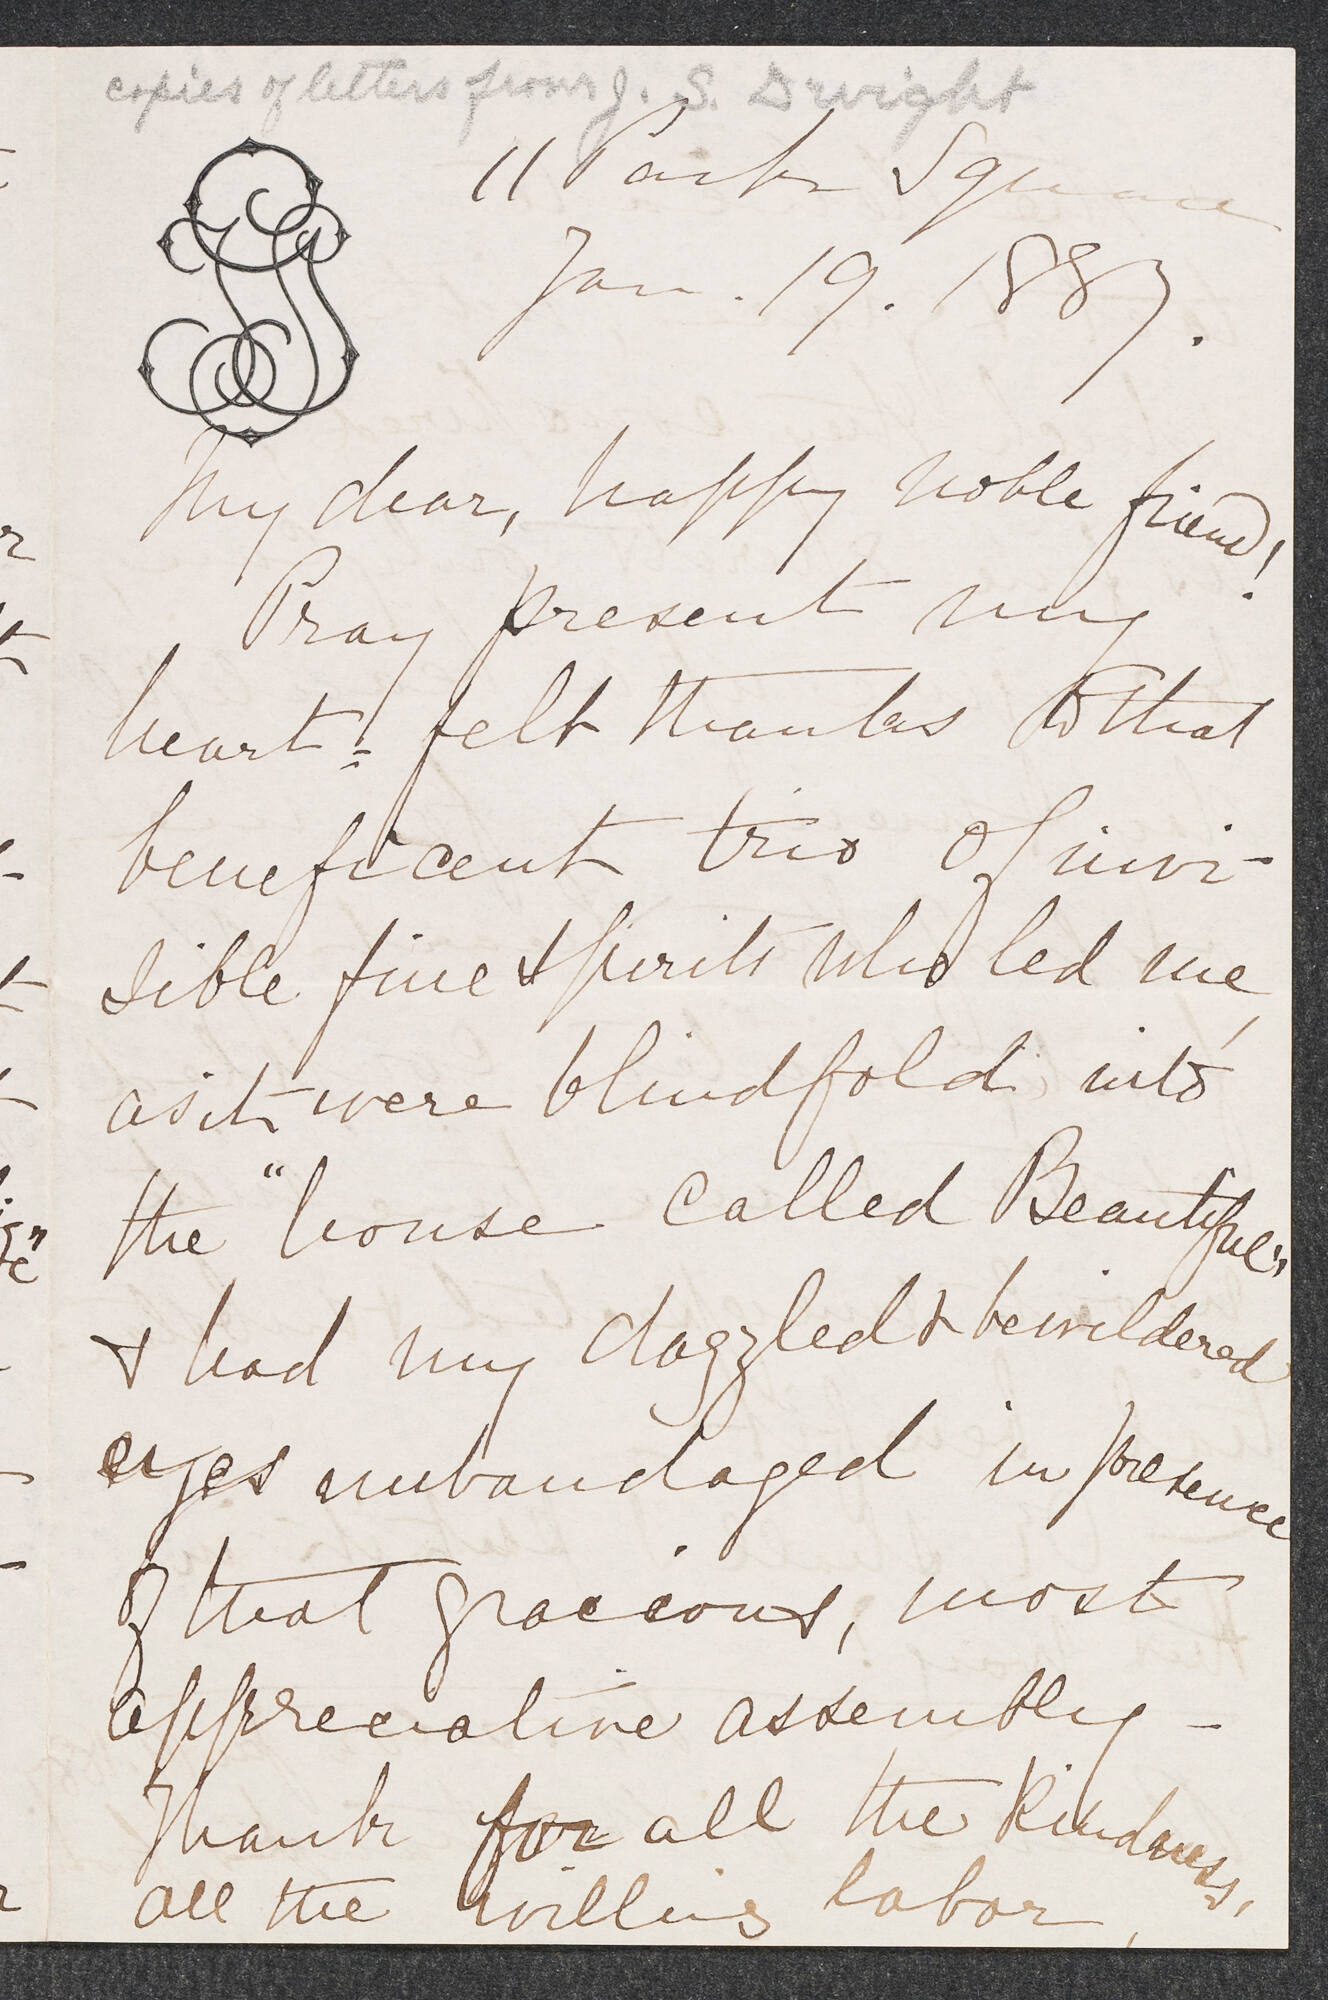 copies of letters from J. S. Dwight
11 Park Square
Jan. 19. 1887.
My dear, happy noble friend!
Pray present my
heart=felt thanks to that
beneficent trio of invi-
sible fine spirits who led me,
as it were blindfold into
the "house called Beautiful",
& had my dazzled & bewildered
eyes unbandaged in presence
of that gracious, most
appreciative assembly -
Thanks for all the kindness,
all the willing labor,